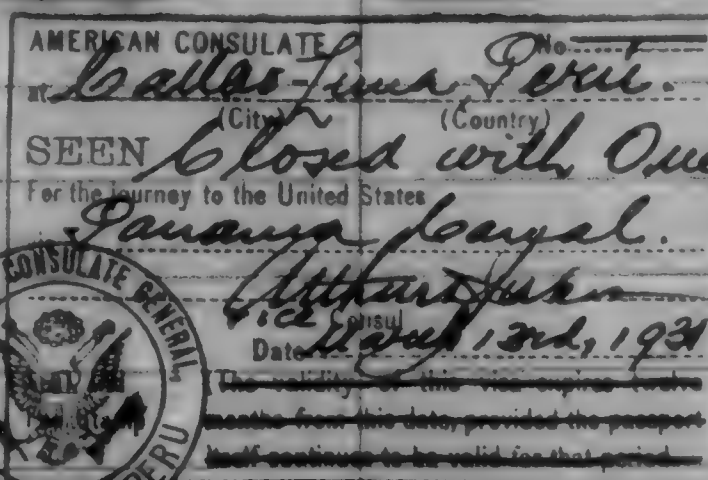 AMERICAN CONSULATE No.
at Callao-Lima Peru.
(City) (Country)
SEEN Closed with One
For the journey to the United States
Panama Canal.
Arthur
Vice Consul
Date March 13rd, 1931
The validity of this visa expires twelve
months from this date, provided the passport
itself continues to be valid for that period.
CONSULATE GENERAL,
PERU